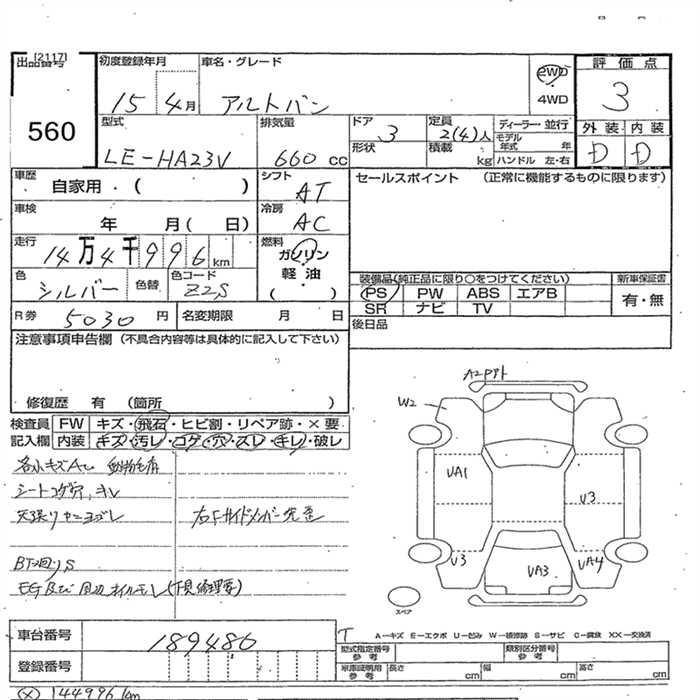 [2117]
出品番号
560
初度登録年月
15 4月
車名・グレード
アルトバン
2WD
4WD
評価点
3
外装 内装
D D
型式
LE-HA23V
排気量
660 cc
ドア
3
定員
2(4)人
ディーラー・並行
モデル年式 年
形状
積載 kg
ハンドル 左・右
車歴
自家用・( )
シフト
AT
セールスポイント (正常に機能するものに限ります)
車検
年 月( 日)
冷房
AC
走行
14万4千996km
燃料
ガソリン
軽油
( )
色
シルバー
色替
色コード
Z2S
装備品(純正品に限り○をつけてください)
新車保証書
PS PW ABS エアB
SR ナビ TV
有・無
R券 5030 円
名変期限 月 日
後日品
注意事項申告欄 (不具合内容等は具体的に記入して下さい)
修復歴 有 (箇所 )
検査員記入欄
FW キズ・飛石・ヒビ割・リペア跡・×要
内装 キズ・汚レ・コゲ・穴・スレ・キレ・破レ
各小キズA
シートコゲ穴、キレ
天張リヤニヨゴレ
右Fサイドメンバー先歪
BT
EG及び
オイルモレ(下見修理要)
W2
UA1
U3
U3
UA3
UA4
スペア
車台番号
189486
登録番号
T
A―キズ E―エクボ U―凹み W―補修跡 S―サビ C―腐蝕 XX―交換済
型式指定番号
参考
類別区分番号
参考
車庫証明用
参考
長さ cm 幅 cm 高さ cm
(×) 144996km